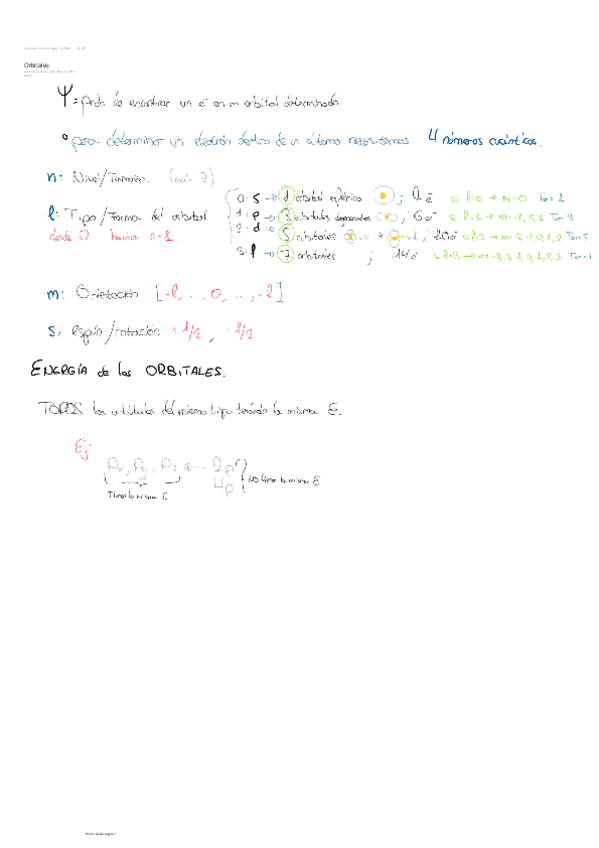 Orbitales
Ψ = Prob de encontrar un e⁻ en un orbital determinado
° para determinar un electrón dentro de un átomo necesitamos 4 números cuánticos.
n: Nivel/Tamaño. 7)
l: Tipo/Forma del orbital
desde 0 hasta n-1
0: s → 1 orbital esférico ; 2 e⁻ si l=0 → m=0 Tot=1
1: p → 3 orbitales degenerados ; 6 e⁻ si l=1 → m=-1,0,1 Tot=3
2: d → 5 orbitales + ; 10 e⁻ si l=2 → m=-2,-1,0,1,2 Tot=5
3: f → 7 orbitales ; 14 e⁻ si l=3 → m=-3,-2,-1,0,1,2,3 Tot=7
m: Orientación [-l, ..., 0, ..., l]
s: espín/rotación +1/2, -1/2
ENERGÍA de los ORBITALES.
TODOS los orbitales del mismo tipo tendrán la misma E.
Ej:
Px, Py, Pz ← 2p
4p
} No tienen la misma E
Tienen la misma E